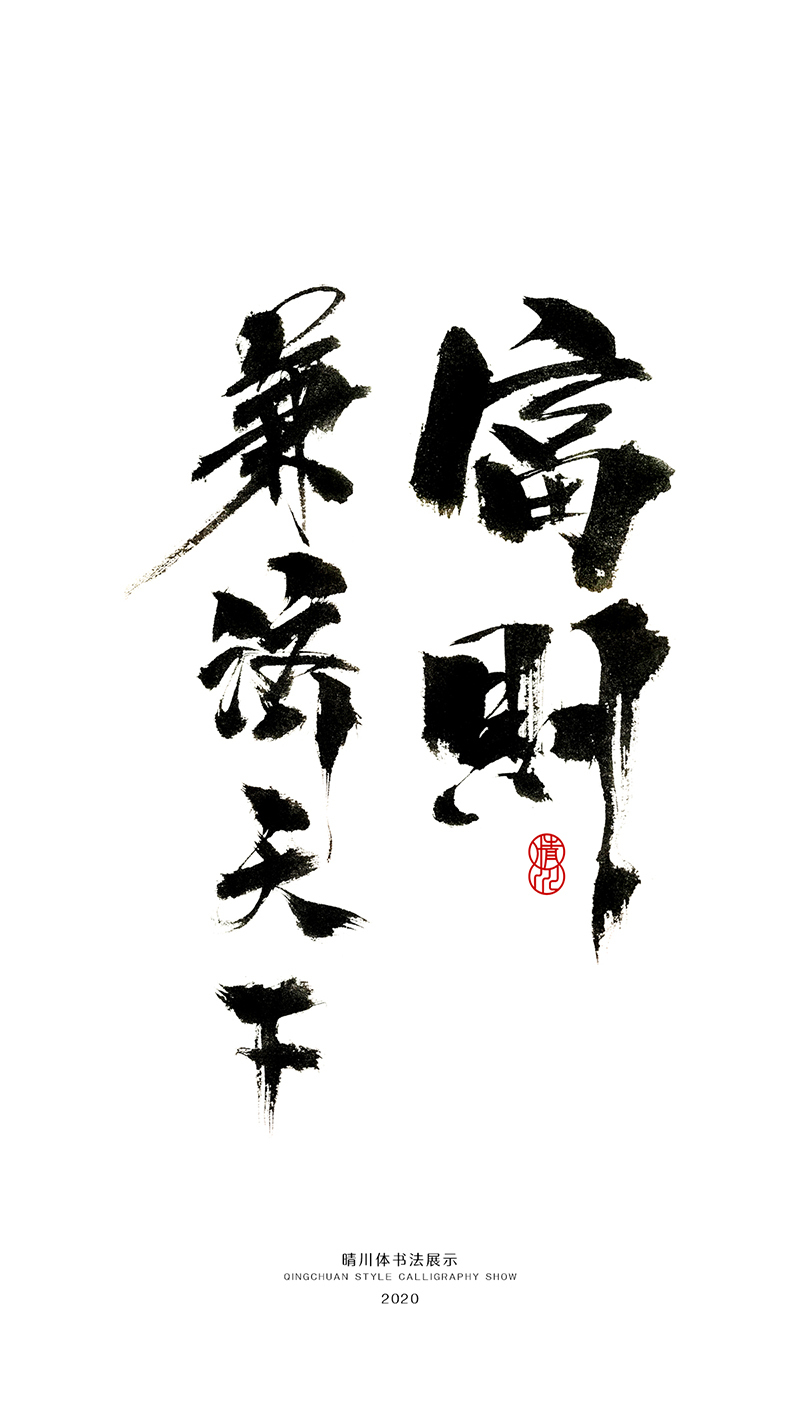 富則
兼济天下
晴川
晴川体书法展示
QINGCHUAN STYLE CALLIGRAPHY SHOW
2020